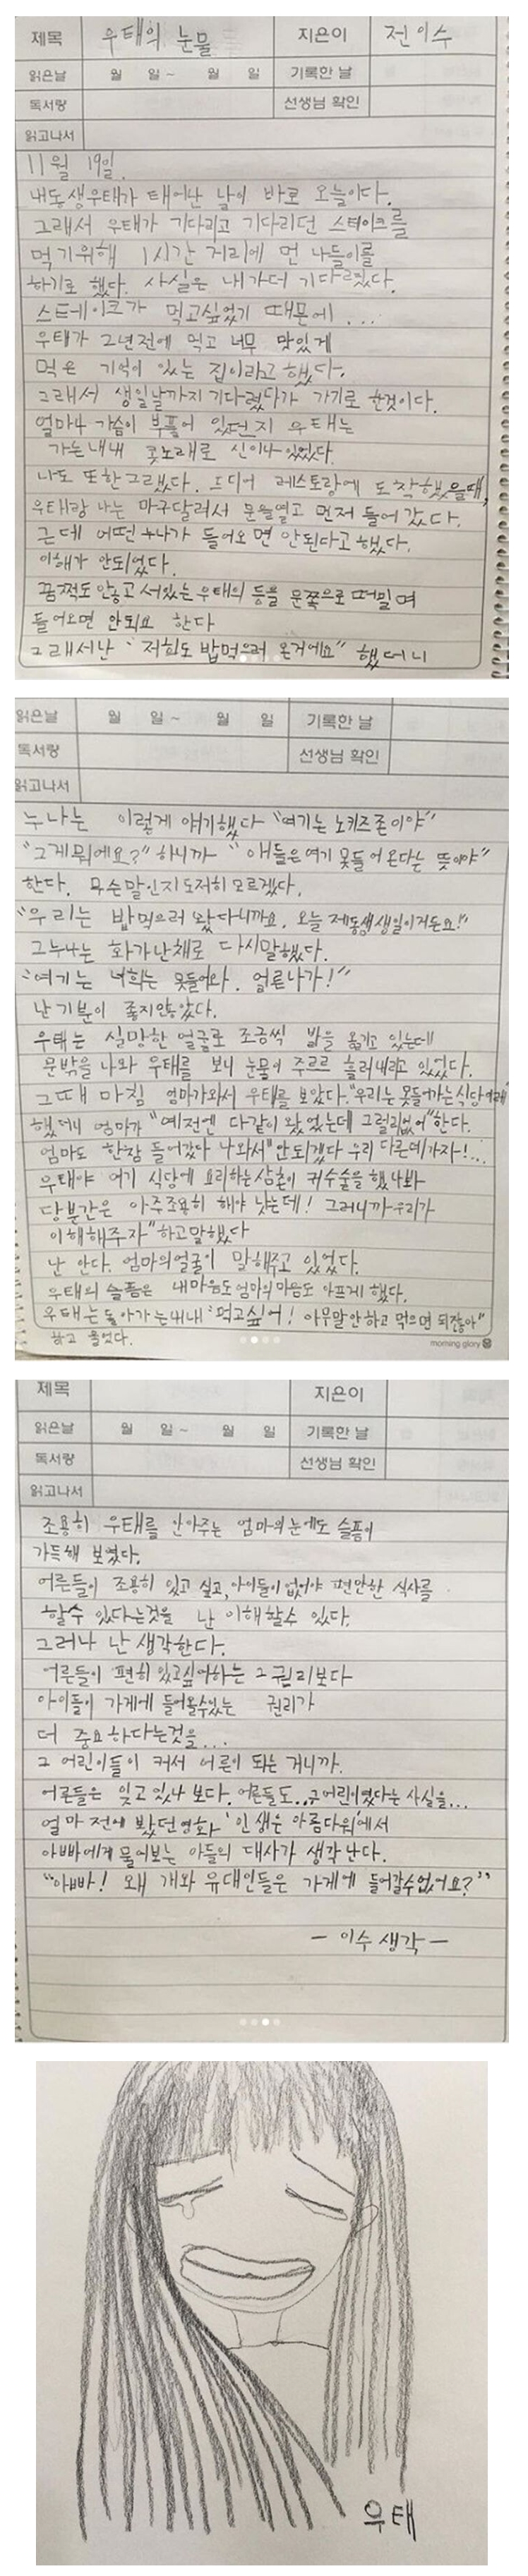 제목 우태의 눈물 지은이 전이수
읽은날 월 일~ 월 일 기록한 날
독서량 선생님 확인
읽고나서
11월 19일.
내동생우태가 태어난 날이 바로 오늘이다.
그래서 우태가 기다리고 기다리던 스테이크를
먹기위해 1시간 거리에 먼 나들이를
하기로 했다. 사실은 내가더 기다렸다.
스테이크가 먹고싶었기 때문에 ....
우태가 2년전에 먹고 너무 맛있게
먹은 기억이 있는 집이라고 했다.
그래서 생일날까지 기다렸다가 가기로 한것이다.
얼마나 가슴이 부풀어 있던지 우태는
가는내내 콧노래로 신이나 있었다.
나도 또한그랬다. 드디어 레스토랑에 도착했을때,
우태랑 나는 마구달려서 문을열고 먼저 들어 갔다.
근데 어떤 누나가 들어오면 안된다고 했다.
이해가 안되었다.
꿈쩍도 안하고 서있는 우태의 등을 문쪽으로 떠밀며
들어오면 안되요 한다
그래서난 "저희도 밥먹으러 온거에요" 했더니
읽은날 월 일~ 월 일 기록한 날
독서량 선생님 확인
읽고나서
누나는 이렇게 얘기했다 "여기는 노키즈존이야"
"그게뭐에요?" 하니까 "애들은여기 못들어온다는 뜻이야"
한다. 무슨말인지도저히 모르겠다.
"우리는 밥먹으러 왔다니까요. 오늘 제동생생일이거든요!"
그누나는 화가난채로 다시말했다.
"여기는 너희는 못들어와. 얼른나가!"
난 기분이 좋지않았다.
우태는 실망한 얼굴로 조금씩 발을 옮기고 있는데
문밖을 나와 우태를 보니 눈물이 주르르 흘러내리고 있었다.
그때 마침 엄마가와서 우태를 보았다. "우리는 못들어가는식당이래"
했더니 엄마가 "예전엔 다같이 왔었는데 그럴리없어"한다.
엄마도 한참 들어갔다 나와서 "안되겠다 우리 다른데가자!...
우태야 여기 식당에 요리하는삼촌이 귀수술을 했나봐
당분간은 아주조용히 해야 낫는데! 그러니까 우리가
이해해주자"하고말했다
난 안다. 엄마의얼굴이 말해주고 있었다.
우태의 슬픔은 내마음도 엄마의 마음도 아프게 했다.
우태는 돌아가는내내 "먹고싶어! 아무말안하고 먹으면 되잖아"
하고 울었다.
morning glory
제목 지은이
읽은날 월 일~ 월 일 기록한 날
독서량 선생님 확인
읽고나서
조용히 우태를 안아주는 엄마의 눈에도 슬픔이
가득해 보였다.
어른들이 조용히 있고 싶고, 아이들이없어야 편안한 식사를
할수 있다는것을 난 이해할수 있다.
그러나 난 생각한다.
어른들이 편히 있고싶어하는 그 권리보다
아이들이 가게에 들어올수있는 권리가
더 중요하다는것을...
그 어린이들이 커서 어른이 되는 거니까.
어른들은 잊고 있나 보다. 어른들도.. 어린이였다는 사실을...
얼마 전에 봤던 영화 '인생은 아름다워'에서
아빠에게 물어보는 아들의 대사가 생각난다.
"아빠! 왜 개와 유대인들은 가게에 들어갈수없어요?"
- 이수 생각 -
우태